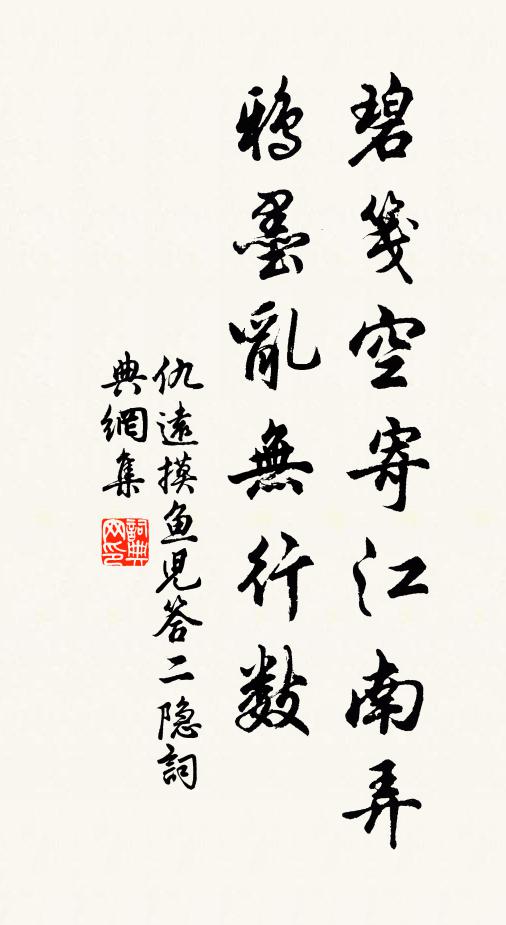 碧箋空寄江南弄
鴉墨亂無行數
仇遠摸魚兒答二隐詞
典網集
詞典網印